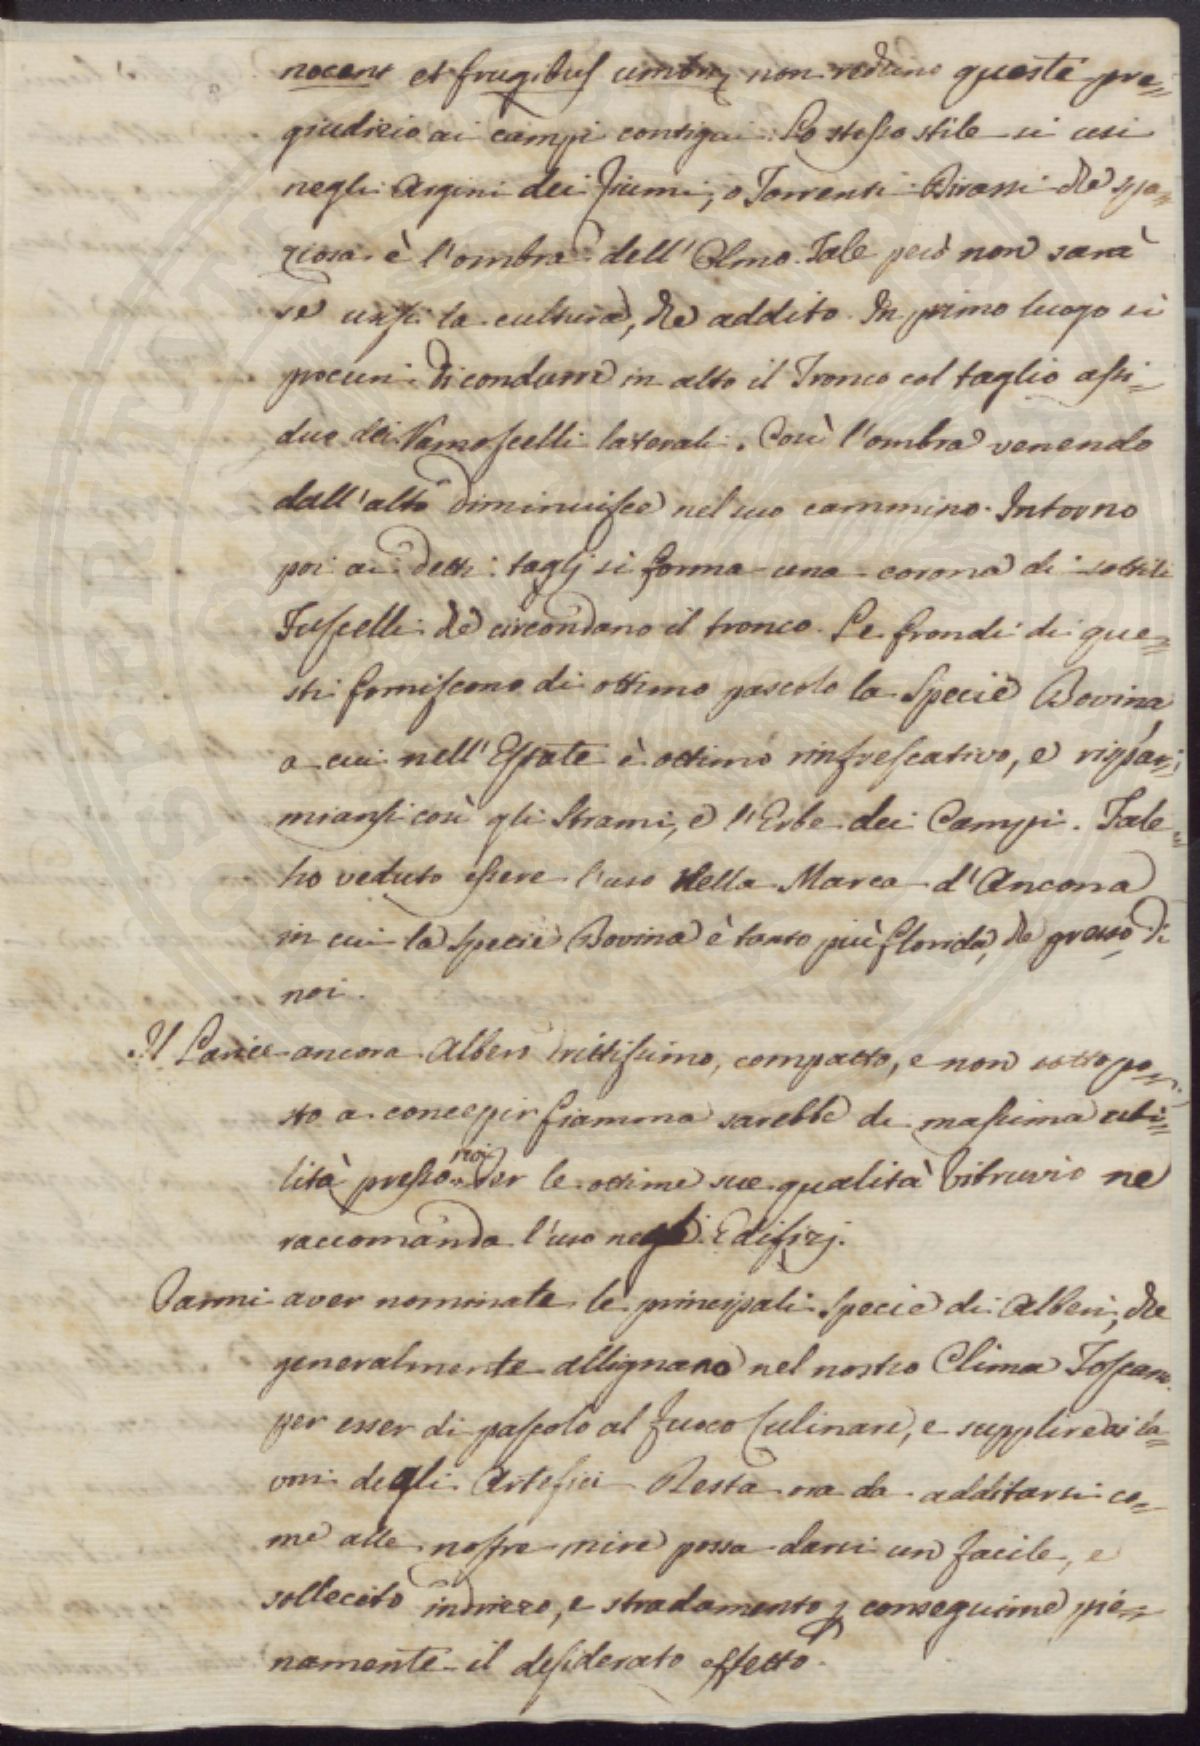 nocent et frugibus umbrę non rechino queste pre=
giudizio ai campi contigui. Lo stesso stile si usi
negli Argini dei Fiumi, o Torrenti. Dirassi che spa=
ziosa è l'ombra dell'Olmo. Tale però non sarà
se usisi la cultura, che addito. In primo luogo si
procuri di condurre in alto il Tronco col taglio assi=
duo dei Ramoscelli laterali. Così l'ombra venendo
dall'alto diminuisce nel suo cammino. Intorno
poi ai detti taglj si forma una corona di sottili
Fuscelli che circondano il tronco. Le frondi di que=
sti forniscono di ottimo pascolo la Specie Bovina
a cui nell'Estate è ottimo rinfrescativo, e rispar=
miansi così gli Strami, e l'Erbe dei Campi. Tale
ho veduto essere l'uso nella Marca d'Ancona
in cui la specie Bovina è tanto più florida, che presso di
noi.
Il Larice ancora Albero drittissimo, compatto, e non sottopo=
sto a concepir fiamma sarebbe di massima uti=
lità presso noi. Per le ottime sue qualità Vitruvio ne
raccomanda l'uso negli Edifizj.
Parmi aver nominate le principali Specie di Alberi, che
generalmente allignano nel nostro Clima Toscano
per esser di pascolo al fuoco Culinare, e supplire ai la=
vori degli Artefici. Resta ora da additarsi co=
me alle nostre mire possa darsi un facile, e
sollecito indirizzo, e stradamento p conseguirne pie=
namente il desiderato effetto.